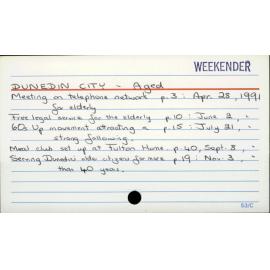 WEEKENDER
DUNEDIN CITY - Aged
Meeting on telephone network p.3 : Apr. 28, 1991
for elderly
Free legal service for the elderly p.10 : June 2, "
60s Up movement attracting a p.15 : July 21, "
strong following.
Meal club set up at Fulton Home p.40, Sept. 8, "
Serving Dunedin older citizens for more p.19 : Nov. 3, "
than 40 years.